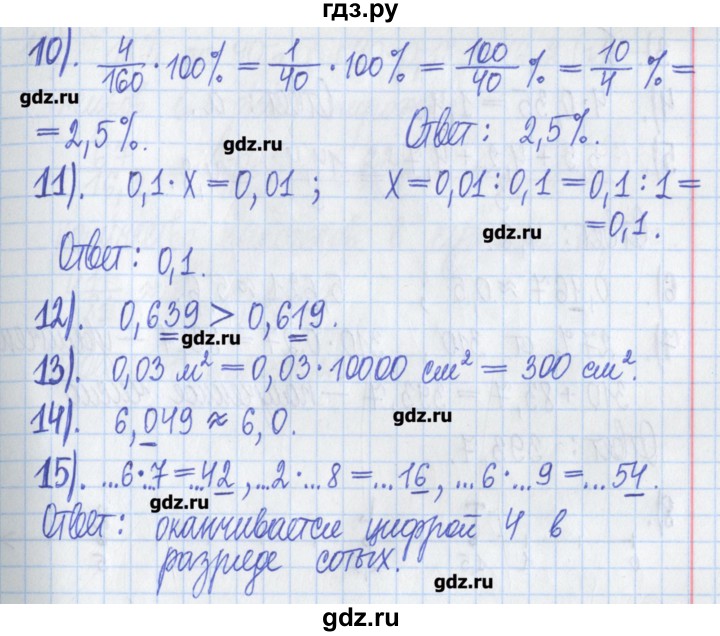 гдз.ру
10). 4/160 · 100% = 1/40 · 100% = 100/40 % = 10/4 % =
gdz.ru
= 2,5%. Ответ: 2,5%.
gdz.ru
11). 0,1 · x = 0,01 ; x = 0,01 : 0,1 = 0,1 : 1 =
= 0,1.
gdz.ru
Ответ: 0,1.
12). 0,639 > 0,619.
gdz.ru
13). 0,03 м² = 0,03 · 10000 см² = 300 см².
14). 6,049 ≈ 6,0.
gdz.ru
15). ...6 · ...7 = ...42, ...2 · ...8 = ...16, ...6 · ...9 = ...54.
gdz.ru
Ответ: оканчивается цифрой 4 в
разряде сотых.
gdz.ru
gdz.ru